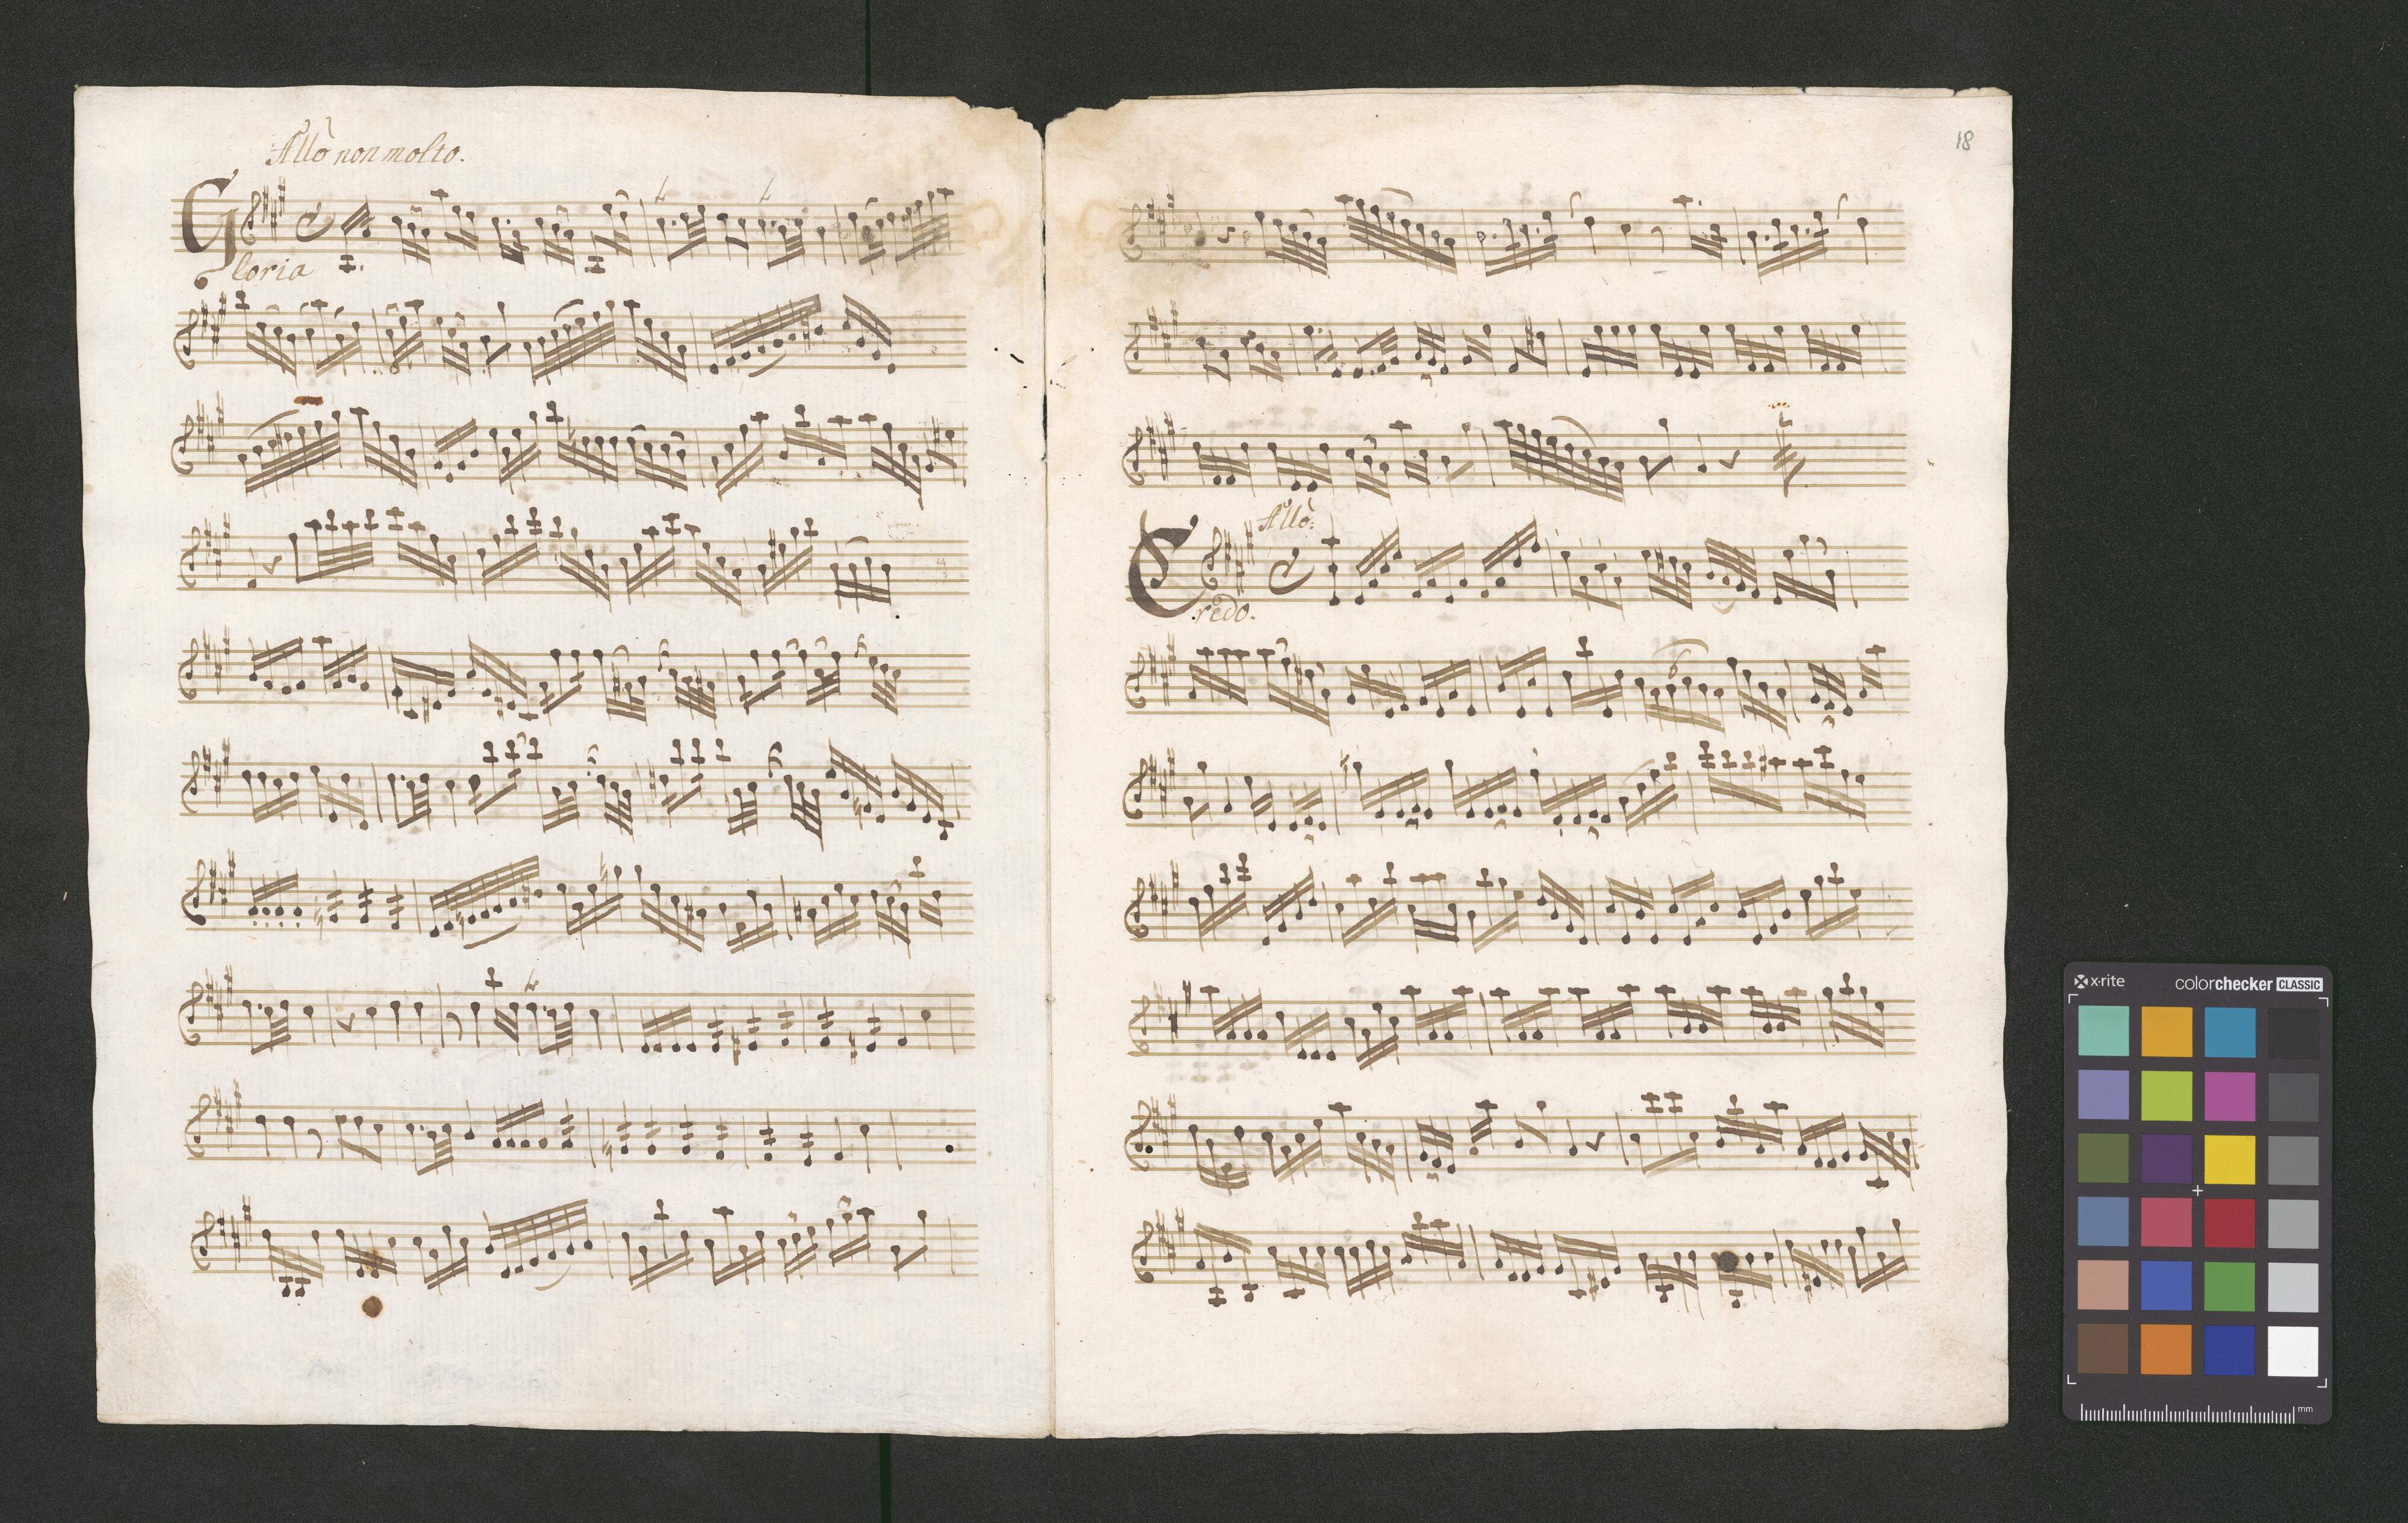 Allo non molto.
Gloria
18
Allo:
Credo.
6
x-rite
colorchecker CLASSIC
mm